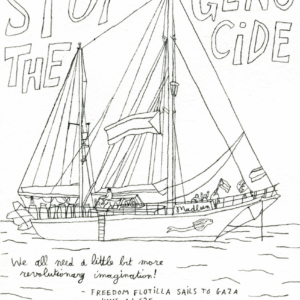 STOP
THE
GENO
CIDE
Madleen
We all need a little bit more
revolutionary imagination!
- FREEDOM FLOTILLA SAILS TO GAZA